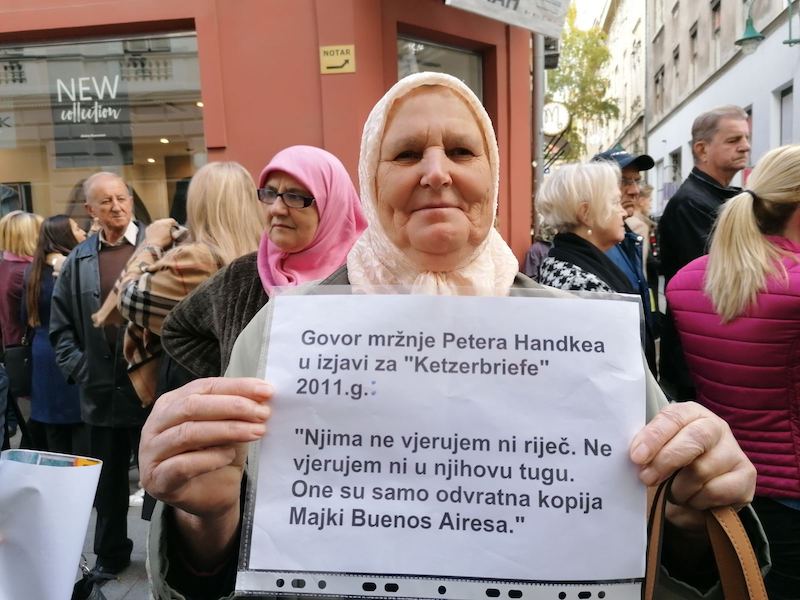 NEW
collection
NOTAR
Govor mržnje Petera Handkea
u izjavi za "Ketzerbriefe"
2011.g.:
"Njima ne vjerujem ni riječ. Ne
vjerujem ni u njihovu tugu.
One su samo odvratna kopija
Majki Buenos Airesa."